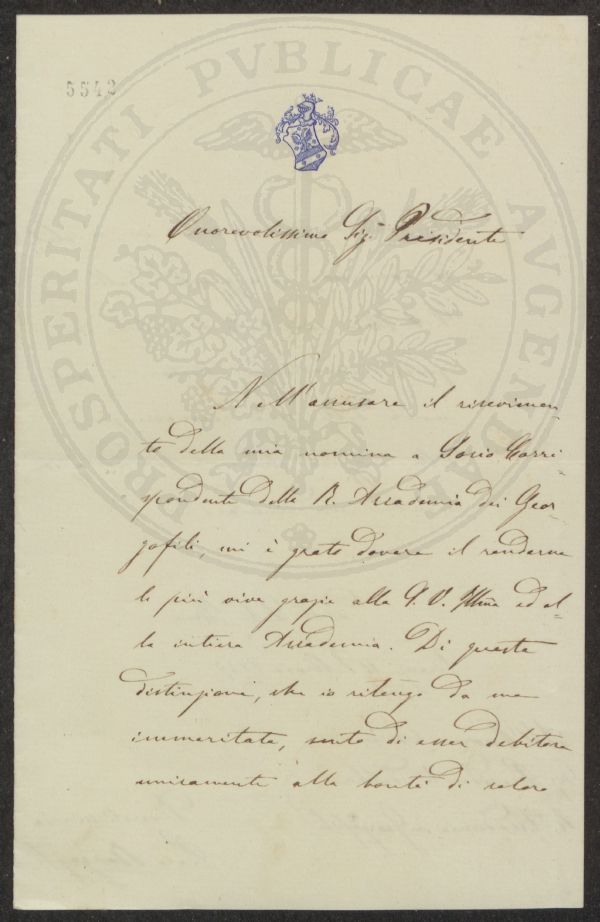 5542
PROSPERITATI PVBLICAE AVGENDAE
Onorevolissimo Sig.r Presidente
Nell'accusare il ricevimen-
to della mia nomina a Socio Corri-
spondente della R. Accademia dei Geor-
gofili, mi è grato dovere il renderne
le più vive grazie alla S. V. Illma ed al-
la intiera Accademia. Di questa
distinzione, che io ritengo da me
immeritata, sento di esser debitore
unicamente alla bontà di coloro